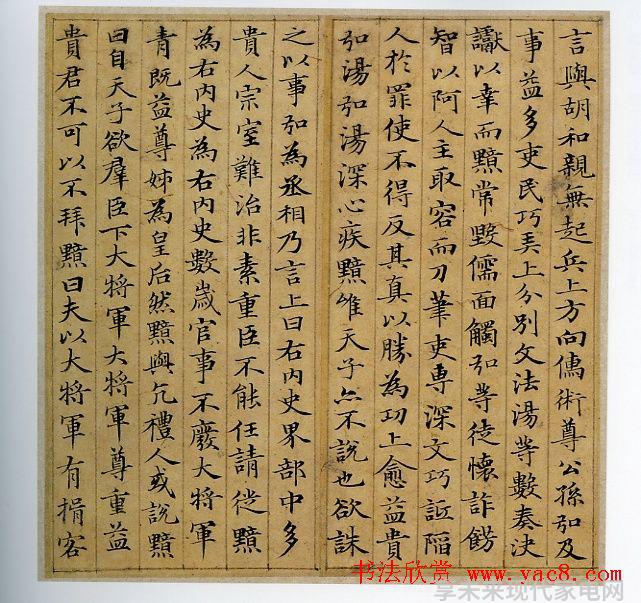 言與胡和親無起兵上方向儒術尊公孫弘及
事益多吏民巧弄上分別文法湯等數奏決
讞以幸而黯常毀儒面觸弘等徒懷詐飾
智以阿人主取容而刀筆吏專深文巧詆陷
人於罪使不得反其真以勝為功上愈益貴
弘湯弘湯深心疾黯雖天子亦不說也欲誅
之以事弘為丞相乃言上曰右內史界部中多
貴人宗室難治非素重臣不能任請徙黯
為右內史為右內史數歲官事不廢大將軍
青既益尊姊為皇后然黯與亢禮人或說黯
曰自天子欲羣臣下大將軍大將軍尊重益
貴君不可以不拜黯曰夫以大將軍有揖客
书法欣赏 www.yac8.com
享未来现代家电网